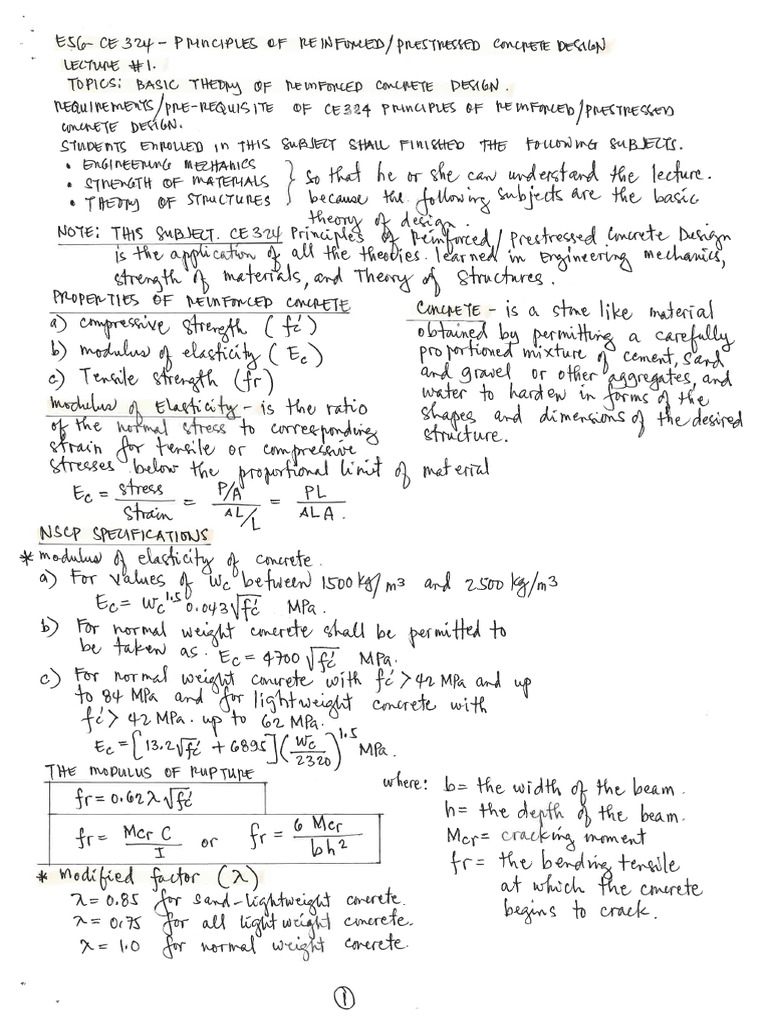 ES6- CE 324 - PRINCIPLES OF REINFORCED/PRESTRESSED CONCRETE DESIGN
LECTURE #1.
TOPICS: BASIC THEORY OF REINFORCED CONCRETE DESIGN.
REQUIREMENTS/PRE-REQUISITE OF CE324 PRINCIPLES OF REINFORCED/PRESTRESSED
CONCRETE DESIGN.
STUDENTS ENROLLED IN THIS SUBJECT SHALL FINISHED THE FOLLOWING SUBJECTS.
• ENGINEERING MECHANICS
• STRENGTH OF MATERIALS
• THEORY OF STRUCTURES
} so that he or she can understand the lecture.
because the following subjects are the basic
theory of design.
NOTE: THIS SUBJECT. CE 324 Principles of Reinforced/Prestressed Concrete Design
is the application of all the theories. learned in Engineering Mechanics,
strength of materials, and Theory of Structures.
PROPERTIES OF REINFORCED CONCRETE
a) compressive strength (fc')
b) modulus of elasticity (Ec)
c) Tensile strength (fr)
CONCRETE - is a stone like material
obtained by permitting a carefully
proportioned mixture of cement, sand
and gravel or other aggregates, and
water to harden in forms of the
shapes and dimensions of the desired
structure.
Modulus of Elasticity - is the ratio
of the normal stress to corresponding
strain for tensile or compressive
stresses below the proportional limit of material
Ec = stress/strain = P/A / ΔL/L = PL/ΔLA.
NSCP SPECIFICATIONS
* modulus of elasticity of concrete.
a) For values of Wc between 1500 kg/m3 and 2500 kg/m3
Ec = Wc^1.5 0.043√fc' MPa.
b) For normal weight concrete shall be permitted to
be taken as. Ec = 4700 √fc' MPa.
c) For normal weight concrete with fc' > 42 MPa and up
to 84 MPa and for lightweight concrete with
fc' > 42 MPa. up to 62 MPa.
Ec = [13.2√fc' + 6895](Wc/2320)^1.5 MPa.
THE MODULUS OF RUPTURE
fr = 0.62λ√fc'
fr = Mcr C/I or fr = 6 Mcr/bh²
where: b = the width of the beam.
h = the depth of the beam.
Mcr = cracking moment
fr = the bending tensile
at which the concrete
begins to crack.
* Modified factor (λ)
λ = 0.85 for sand-lightweight concrete.
λ = 0.75 for all lightweight concrete.
λ = 1.0 for normal weight concrete.
1